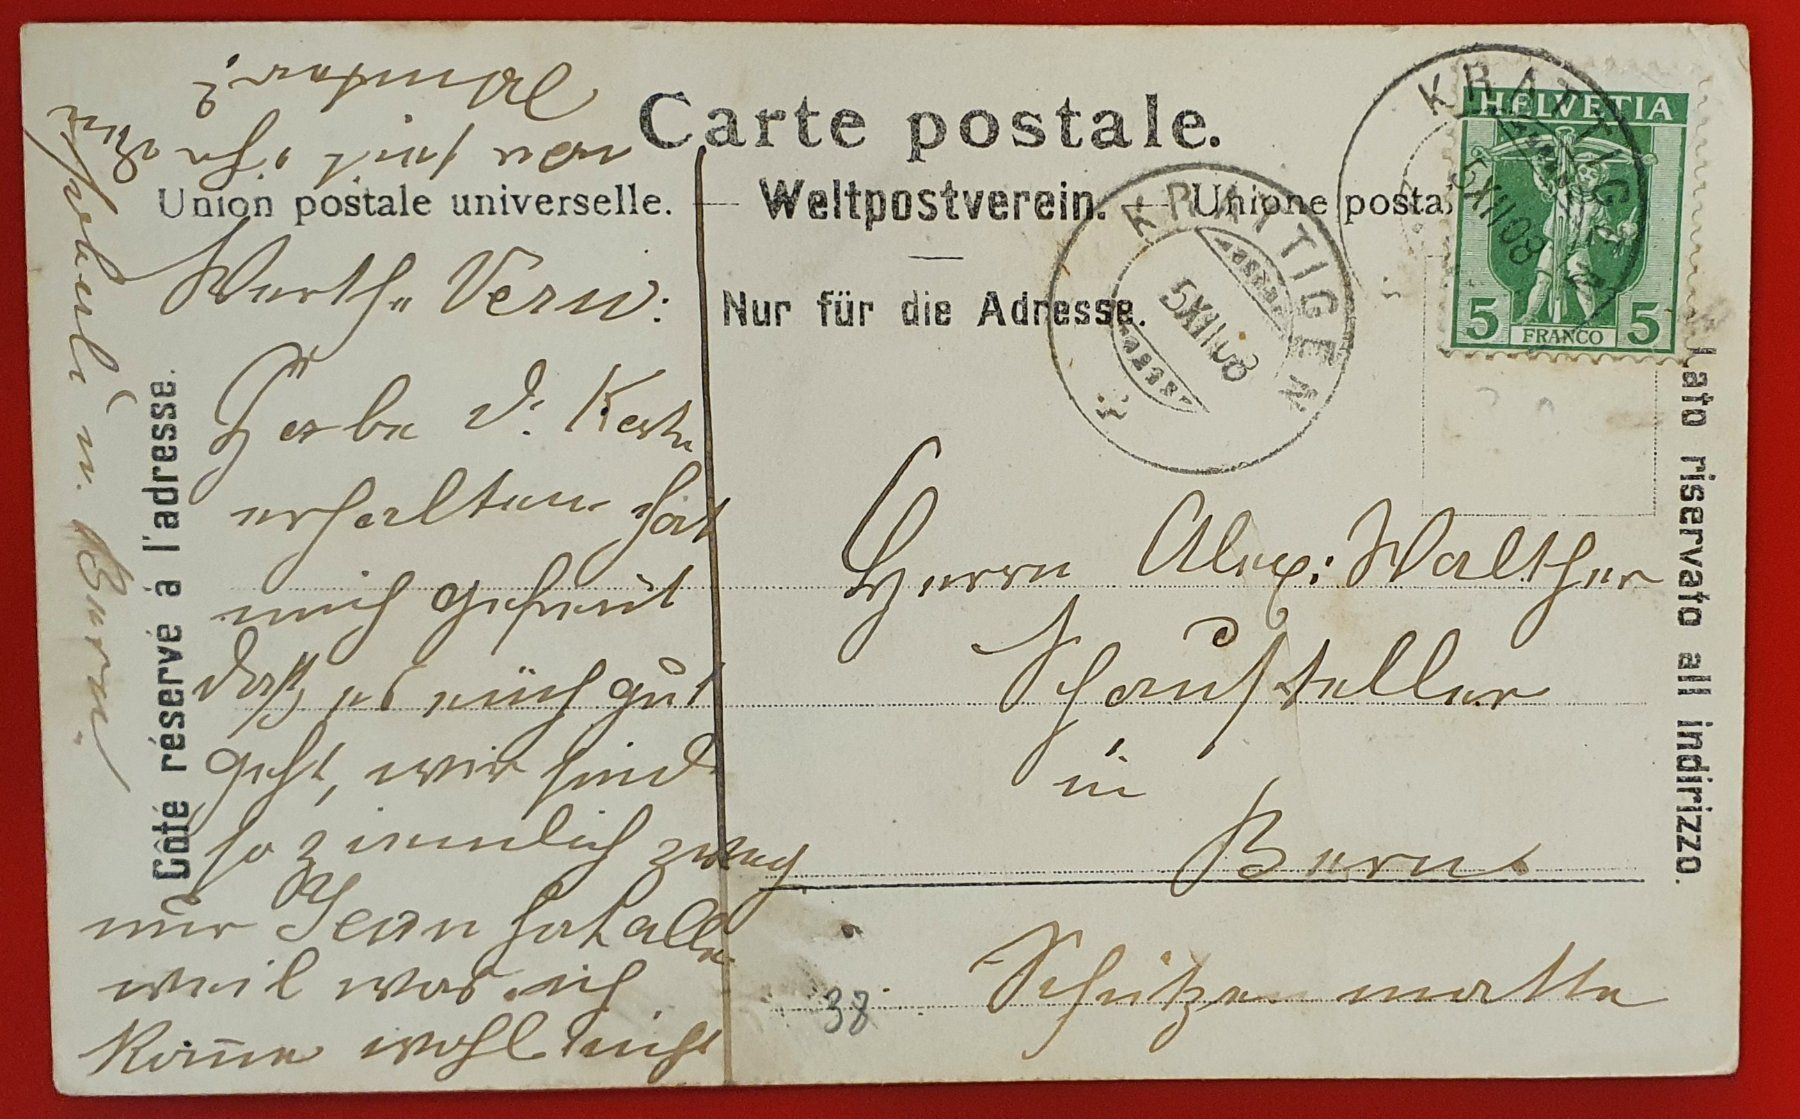 Carte postale.
Union postale universelle. — Weltpostverein. — Unione posta
Nur für die Adresse.
Côté réservé à l'adresse.
Lato riservato all indirizzo.
HELVETIA
5 FRANCO 5
KRATTIGEN
5 XII 08
KRATTIGEN
5 XII 08
Werthe Verw:
Habe d. Karte
erhalten hat
mich gefreut
daß es euch gut
geht, wir sind
so ziemlich zweg
nur Jean hat alle
weil was ich
kome wohl nicht
u. Bern
von seit ihr
Winter?
Herrn Alex: Walther
Schausteller
in
Bern
Schützenmatte
38